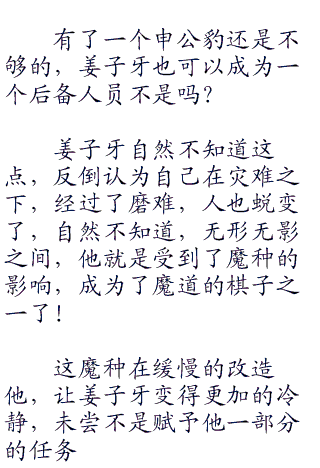 有了一个申公豹还是不
够的，姜子牙也可以成为一
个后备人员不是吗？
姜子牙自然不知道这
点，反倒认为自己在灾难之
下，经过了磨难，人也蜕变
了，自然不知道，无形无影
之间，他就是受到了魔种的
影响，成为了魔道的棋子之
一了！
这魔种在缓慢的改造
他，让姜子牙变得更加的冷
静，未尝不是赋予他一部分
的任务